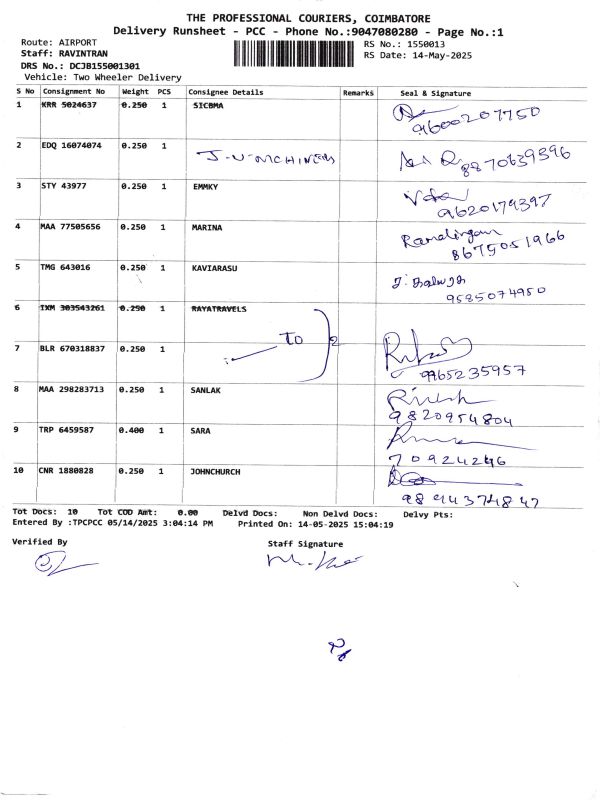 THE PROFESSIONAL COURIERS, COIMBATORE
Delivery Runsheet - PCC - Phone No.:9047080280 - Page No.:1
Route: AIRPORT RS No.: 1550013
Staff: RAVINTRAN RS Date: 14-May-2025
DRS No.: DCJB155001301
Vehicle: Two Wheeler Delivery
S No Consignment No Weight PCS Consignee Details Remarks Seal & Signature
1 KRR 5024637 0.250 1 SICBMA
9600207750
2 EDQ 16074074 0.250 1
8870639396
3 STY 43977 0.250 1 EMMKY
9620179397
4 MAA 77505656 0.250 1 MARINA Ramalingam
8675051966
5 TMG 643016 0.250 1 KAVIARASU
9585074950
6 IXM 303543261 0.250 1 RAYATRAVELS
TO 2
7 BLR 670318837 0.250 1
9965235957
8 MAA 298283713 0.250 1 SANLAK
9820954804
9 TRP 6459587 0.400 1 SARA
70924246
10 CNR 1880828 0.250 1 JOHNCHURCH
9894374847
Tot Docs: 10 Tot COD Amt: 0.00 Delvd Docs: Non Delvd Docs: Delvy Pts:
Entered By :TPCPCC 05/14/2025 3:04:14 PM Printed On: 14-05-2025 15:04:19
Verified By Staff Signature